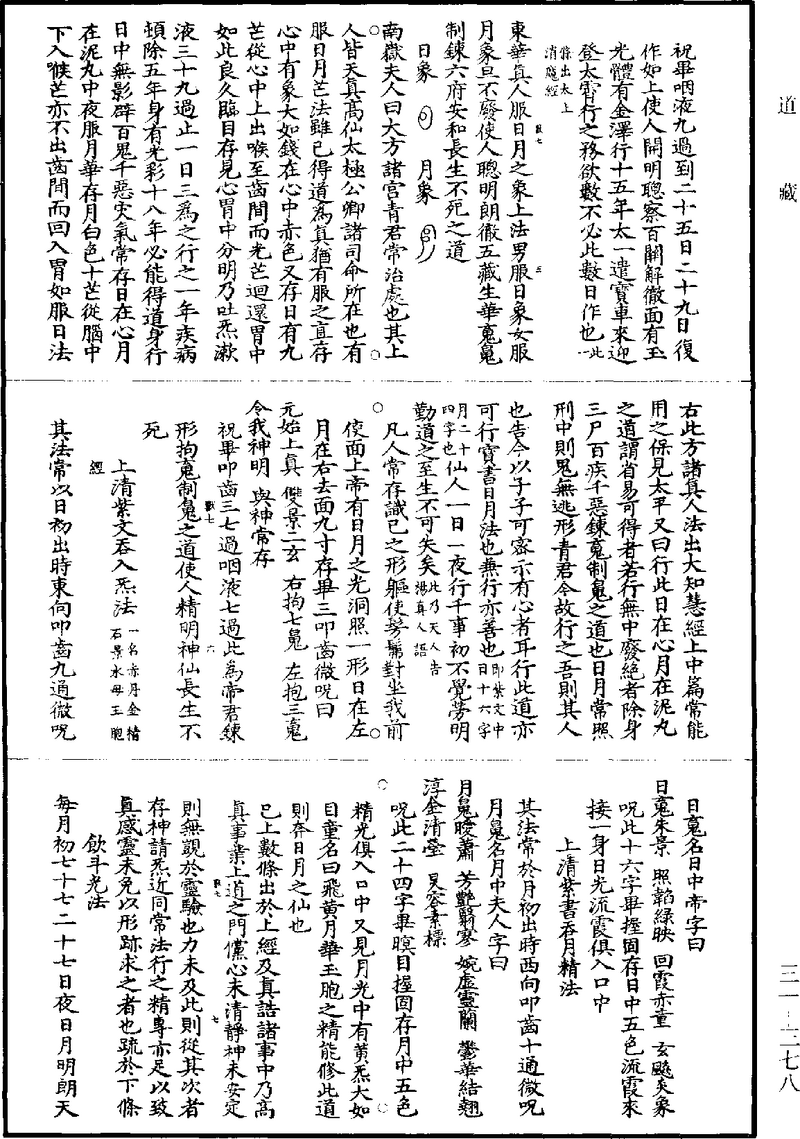 道藏
祝畢咽液九過到二十五日二十九日復
作如上使人開明聰察百關解徹面有玉
光體有金澤行十五年太一遣寶車來迎
登太霄行之務欲數不必此數日作也此一
條出太上
消魔經
東華真人服日月之象上法男服日象女服
月象旦不廢使人聰明朗徹五藏生華䰟魄
制鍊六府安和長生不死之道
日象 月象
南嶽夫人曰大方諸宮青君常治處也其上
人皆天真高仙太極公卿諸司命所在也有
服日月芒法雖已得道為真猶有服之直存
心中有象大如錢在心中赤色又存日有九
芒從心中上出喉至齒間而光芒迴還胃中
如此良久臨目存見心胃中分明乃吐炁漱
液三十九過止一日三為之行之一年疾病
頓除五年身有光彩十八年必能得道身行
日中無影辟百鬼千惡災氣常存日在心月
在泥丸中夜服月華存月白色十芒從腦中
下入喉芒亦不出齒間而回入胃如服日法
右此方諸真人法出大知慧經上中篇常能
用之保見太平又曰行此日在心月在泥丸
之道謂省易可得者若行無中廢絕者除身
三尸百疾千惡鍊䰟制魄之道也日月常照
刑中則鬼無逃形青君今故行之吾則其人
也告今以子子可密示有心者耳行此道亦
可行寶書日月法也兼行亦善也即紫文中
日十六字
月二十
四字也仙人一日一夜行千事初不覺勞明
勤道之至生不可失矣此乃天人告
楊真人語
凡人常存識己之形軀使髣髴對坐我前
使面上帝有日月之光洞照一形日在左
月在右去面九寸存畢三叩齒微呪曰
元始上真 雙景二玄 右拘七魄 左抱三䰟
令我神明 與神常存
祝畢叩齒三七過咽液七過此為帝君鍊
形拘䰟制魄之道使人精明神仙長生不
死
上清紫文吞入炁法一名赤丹金精
石景水母玉胞
經
其法常以日初出時東向叩齒九通微呪
日䰟名日中帝字曰
日䰟朱景 照韜綠映 回霞赤童 玄飈炎象
呪此十六字畢握固存日中五色流霞來
接一身日光流霞俱入口中
上清紫書吞月精法
其法常於月初出時西向叩齒十通微呪
月魄名月中夫人字曰
月魄曖蕭 芳艷翳寥 婉虛靈蘭 鬱華結翹
淳金清瑩 炅容素標
呪此二十四字畢瞑目握固存月中五色
精光俱入口中又見月光中有黃炁大如
目童名曰飛黃月華玉胞之精能修此道
則奔日月之仙也
已上數條出於上經及真誥諸事中乃高
真事業上道之門儻心未清靜神未安定
則無覬於靈驗也力未及此則從其次者
存神請炁近同常法行之精專亦足以致
真感靈未免以形跡求之者也疏於下條
飲斗光法
每月初七十七二十七日夜日月明朗天
三一-六七八